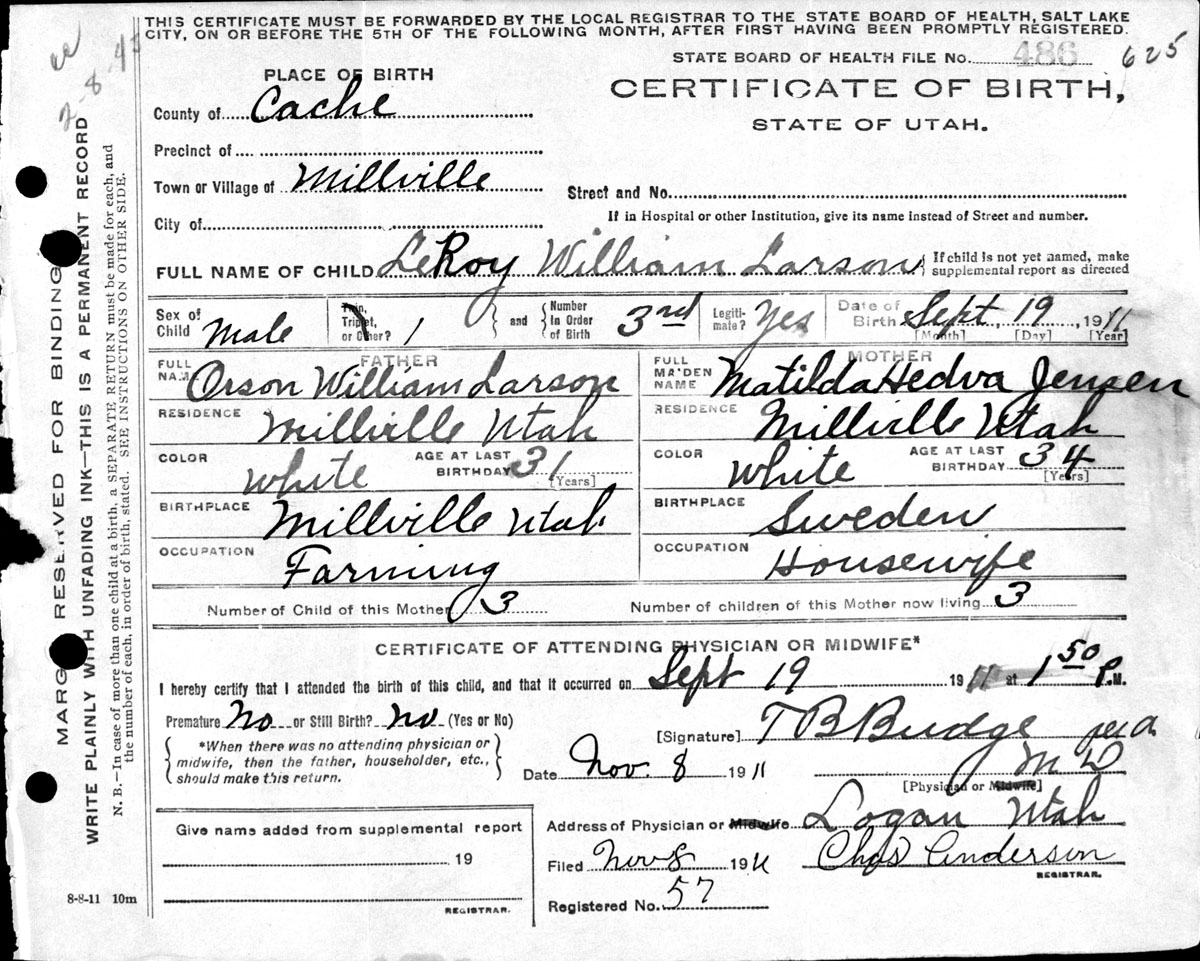 THIS CERTIFICATE MUST BE FORWARDED BY THE LOCAL REGISTRAR TO THE STATE BOARD OF HEALTH, SALT LAKE
CITY, ON OR BEFORE THE 5TH OF THE FOLLOWING MONTH, AFTER FIRST HAVING BEEN PROMPTLY REGISTERED.
STATE BOARD OF HEALTH FILE No. 486 625
PLACE OF BIRTH
CERTIFICATE OF BIRTH,
STATE OF UTAH.
County of Cache
Precinct of
Town or Village of Millville
Street and No.
City of
If in Hospital or other Institution, give its name instead of Street and number.
FULL NAME OF CHILD LeRoy William Larson { If child is not yet named, make
supplemental report as directed
Sex of Child Male
Twin, Triplet, or Other? 1 } and { Number In Order of Birth 3rd
Legitimate? Yes
Date of Birth Sept, 19, 1911
[Month] [Day] [Year]
FATHER
FULL NAME Orson William Larson
RESIDENCE Millville Utah
COLOR White AGE AT LAST BIRTHDAY 31 [Years]
BIRTHPLACE Millville Utah
OCCUPATION Farming
MOTHER
FULL MAIDEN NAME Matilda Hedva Jensen
RESIDENCE Millville Utah
COLOR White AGE AT LAST BIRTHDAY 34 [Years]
BIRTHPLACE Sweden
OCCUPATION Housewife
Number of Child of this Mother 3 Number of children of this Mother now living 3
CERTIFICATE OF ATTENDING PHYSICIAN OR MIDWIFE*
I hereby certify that I attended the birth of this child, and that it occurred on Sept 19 1911 at 1 50 P.M.
Premature No or Still Birth? No (Yes or No)
{ *When there was no attending physician or
midwife, then the father, householder, etc.,
should make this return. }
[Signature] T B Budge
M D
[Physician or Midwife]
Date Nov. 8 1911
Address of Physician or Midwife Logan Utah
Filed Nov 8 1911 Chas Anderson
REGISTRAR.
Registered No. 57
Give name added from supplemental report
19
REGISTRAR.
8-8-11 10m
MARGIN RESERVED FOR BINDING
WRITE PLAINLY WITH UNFADING INK—THIS IS A PERMANENT RECORD
N. B.—In case of more than one child at a birth, a SEPARATE RETURN must be made for each, and
the number of each, in order of birth, stated. SEE INSTRUCTIONS ON OTHER SIDE.